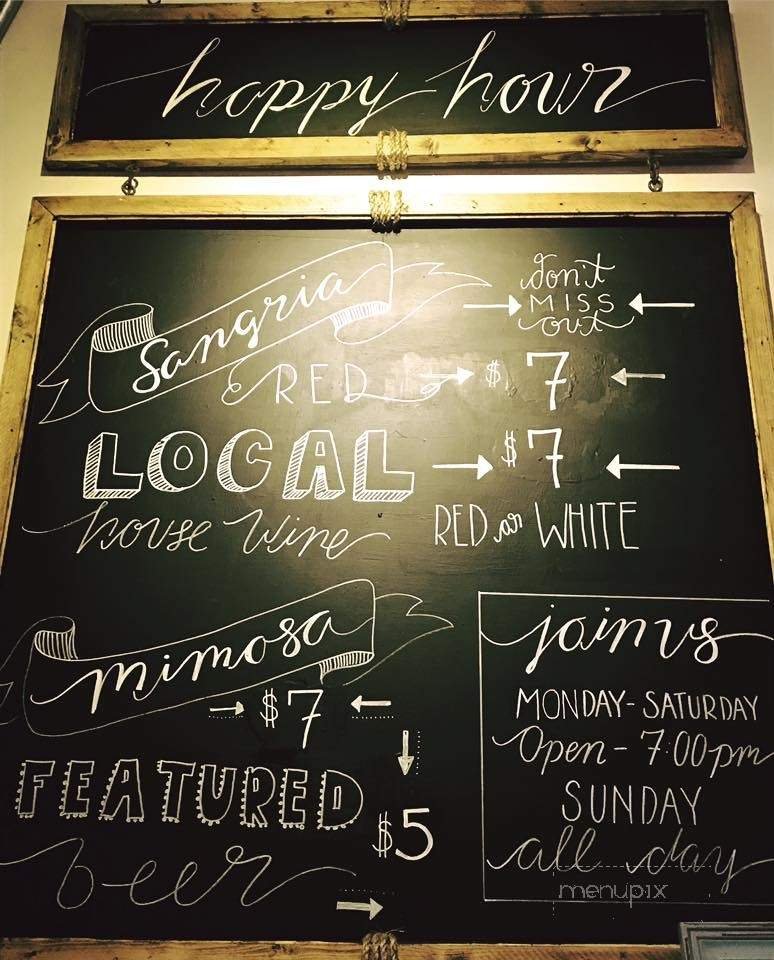 happy hour
Sangria
don't
MISS
out
RED $7
LOCAL $7
house wine RED or WHITE
mimosa
$7
FEATURED
beer
$5
join us
MONDAY-SATURDAY
Open-7:00pm
SUNDAY
all day
menupix